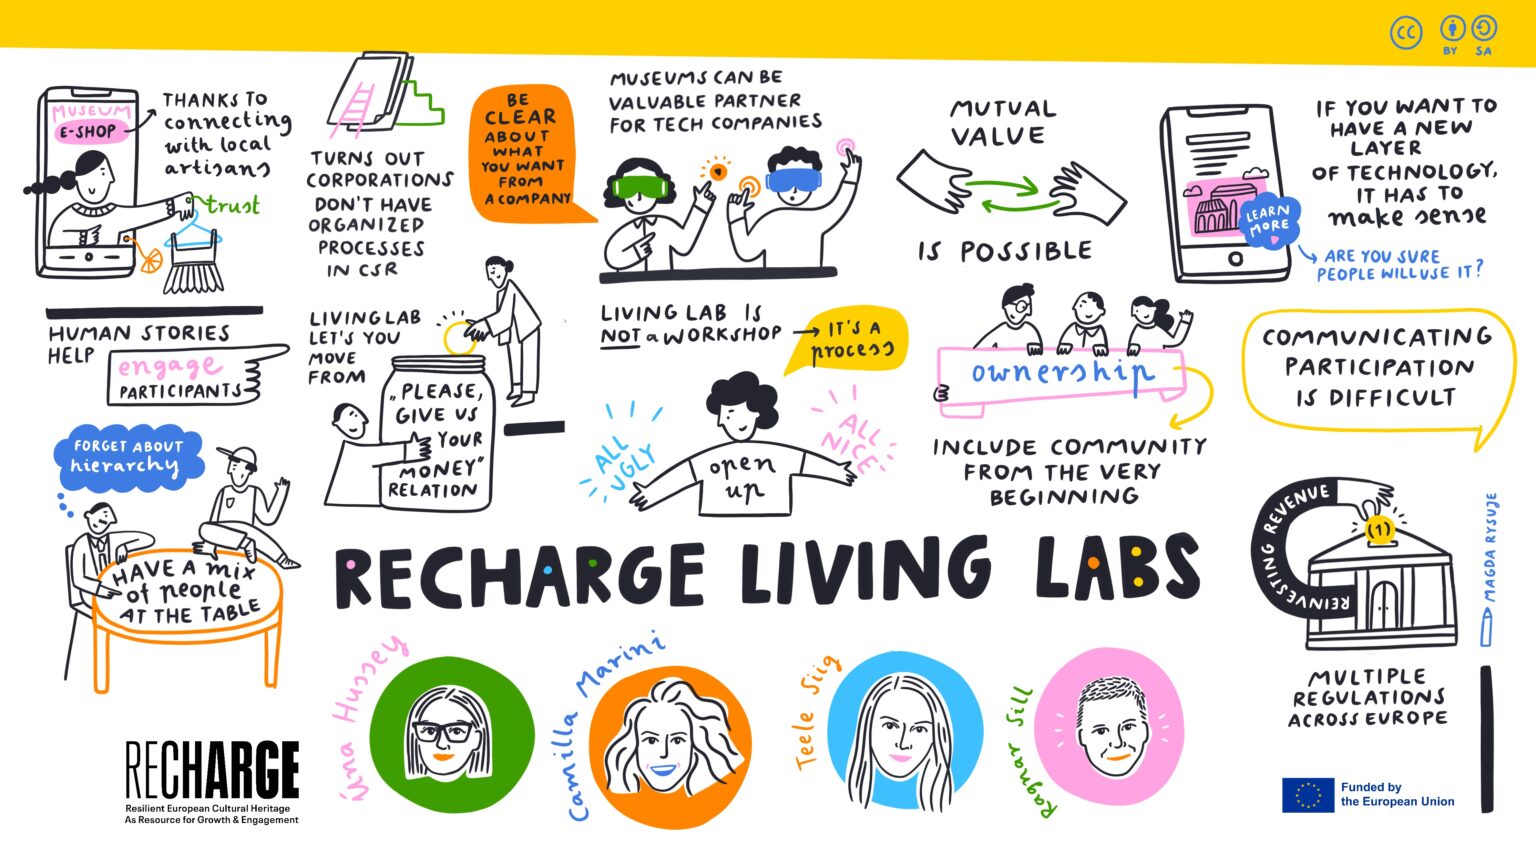 CC
BY SA
MUSEUM
E-SHOP
THANKS TO
connecting
with local
artisans
trust
HUMAN STORIES
HELP
engage
PARTICIPANTS
TURNS OUT
CORPORATIONS
DON'T HAVE
ORGANIZED
PROCESSES
IN CSR
BE
CLEAR
ABOUT
WHAT
YOU WANT
FROM
A COMPANY
MUSEUMS CAN BE
VALUABLE PARTNER
FOR TECH COMPANIES
MUTUAL
VALUE
IS POSSIBLE
LEARN
MORE
IF YOU WANT TO
HAVE A NEW
LAYER
OF TECHNOLOGY,
IT HAS TO
make sense
ARE YOU SURE
PEOPLE WILL USE IT?
LIVING LAB
LET'S YOU
MOVE
FROM
„PLEASE,
GIVE US
YOUR
MONEY"
RELATION
LIVING LAB IS
NOT a WORKSHOP
IT'S A
process
ALL
UGLY
open
up
ALL
NICE
ownership
INCLUDE COMMUNITY
FROM THE VERY
BEGINNING
COMMUNICATING
PARTICIPATION
IS DIFFICULT
FORGET ABOUT
hierarchy
HAVE A mix
of people
AT THE TABLE
REINVESTING REVENUE
(1)
MULTIPLE
REGULATIONS
ACROSS EUROPE
MAGDA RYSUJE
RECHARGE LIVING LABS
Hussey
Camilla Marini
Teele Siig
Ragnar Sill
RECHARGE
Resilient European Cultural Heritage
As Resource for Growth & Engagement
Funded by
the European Union